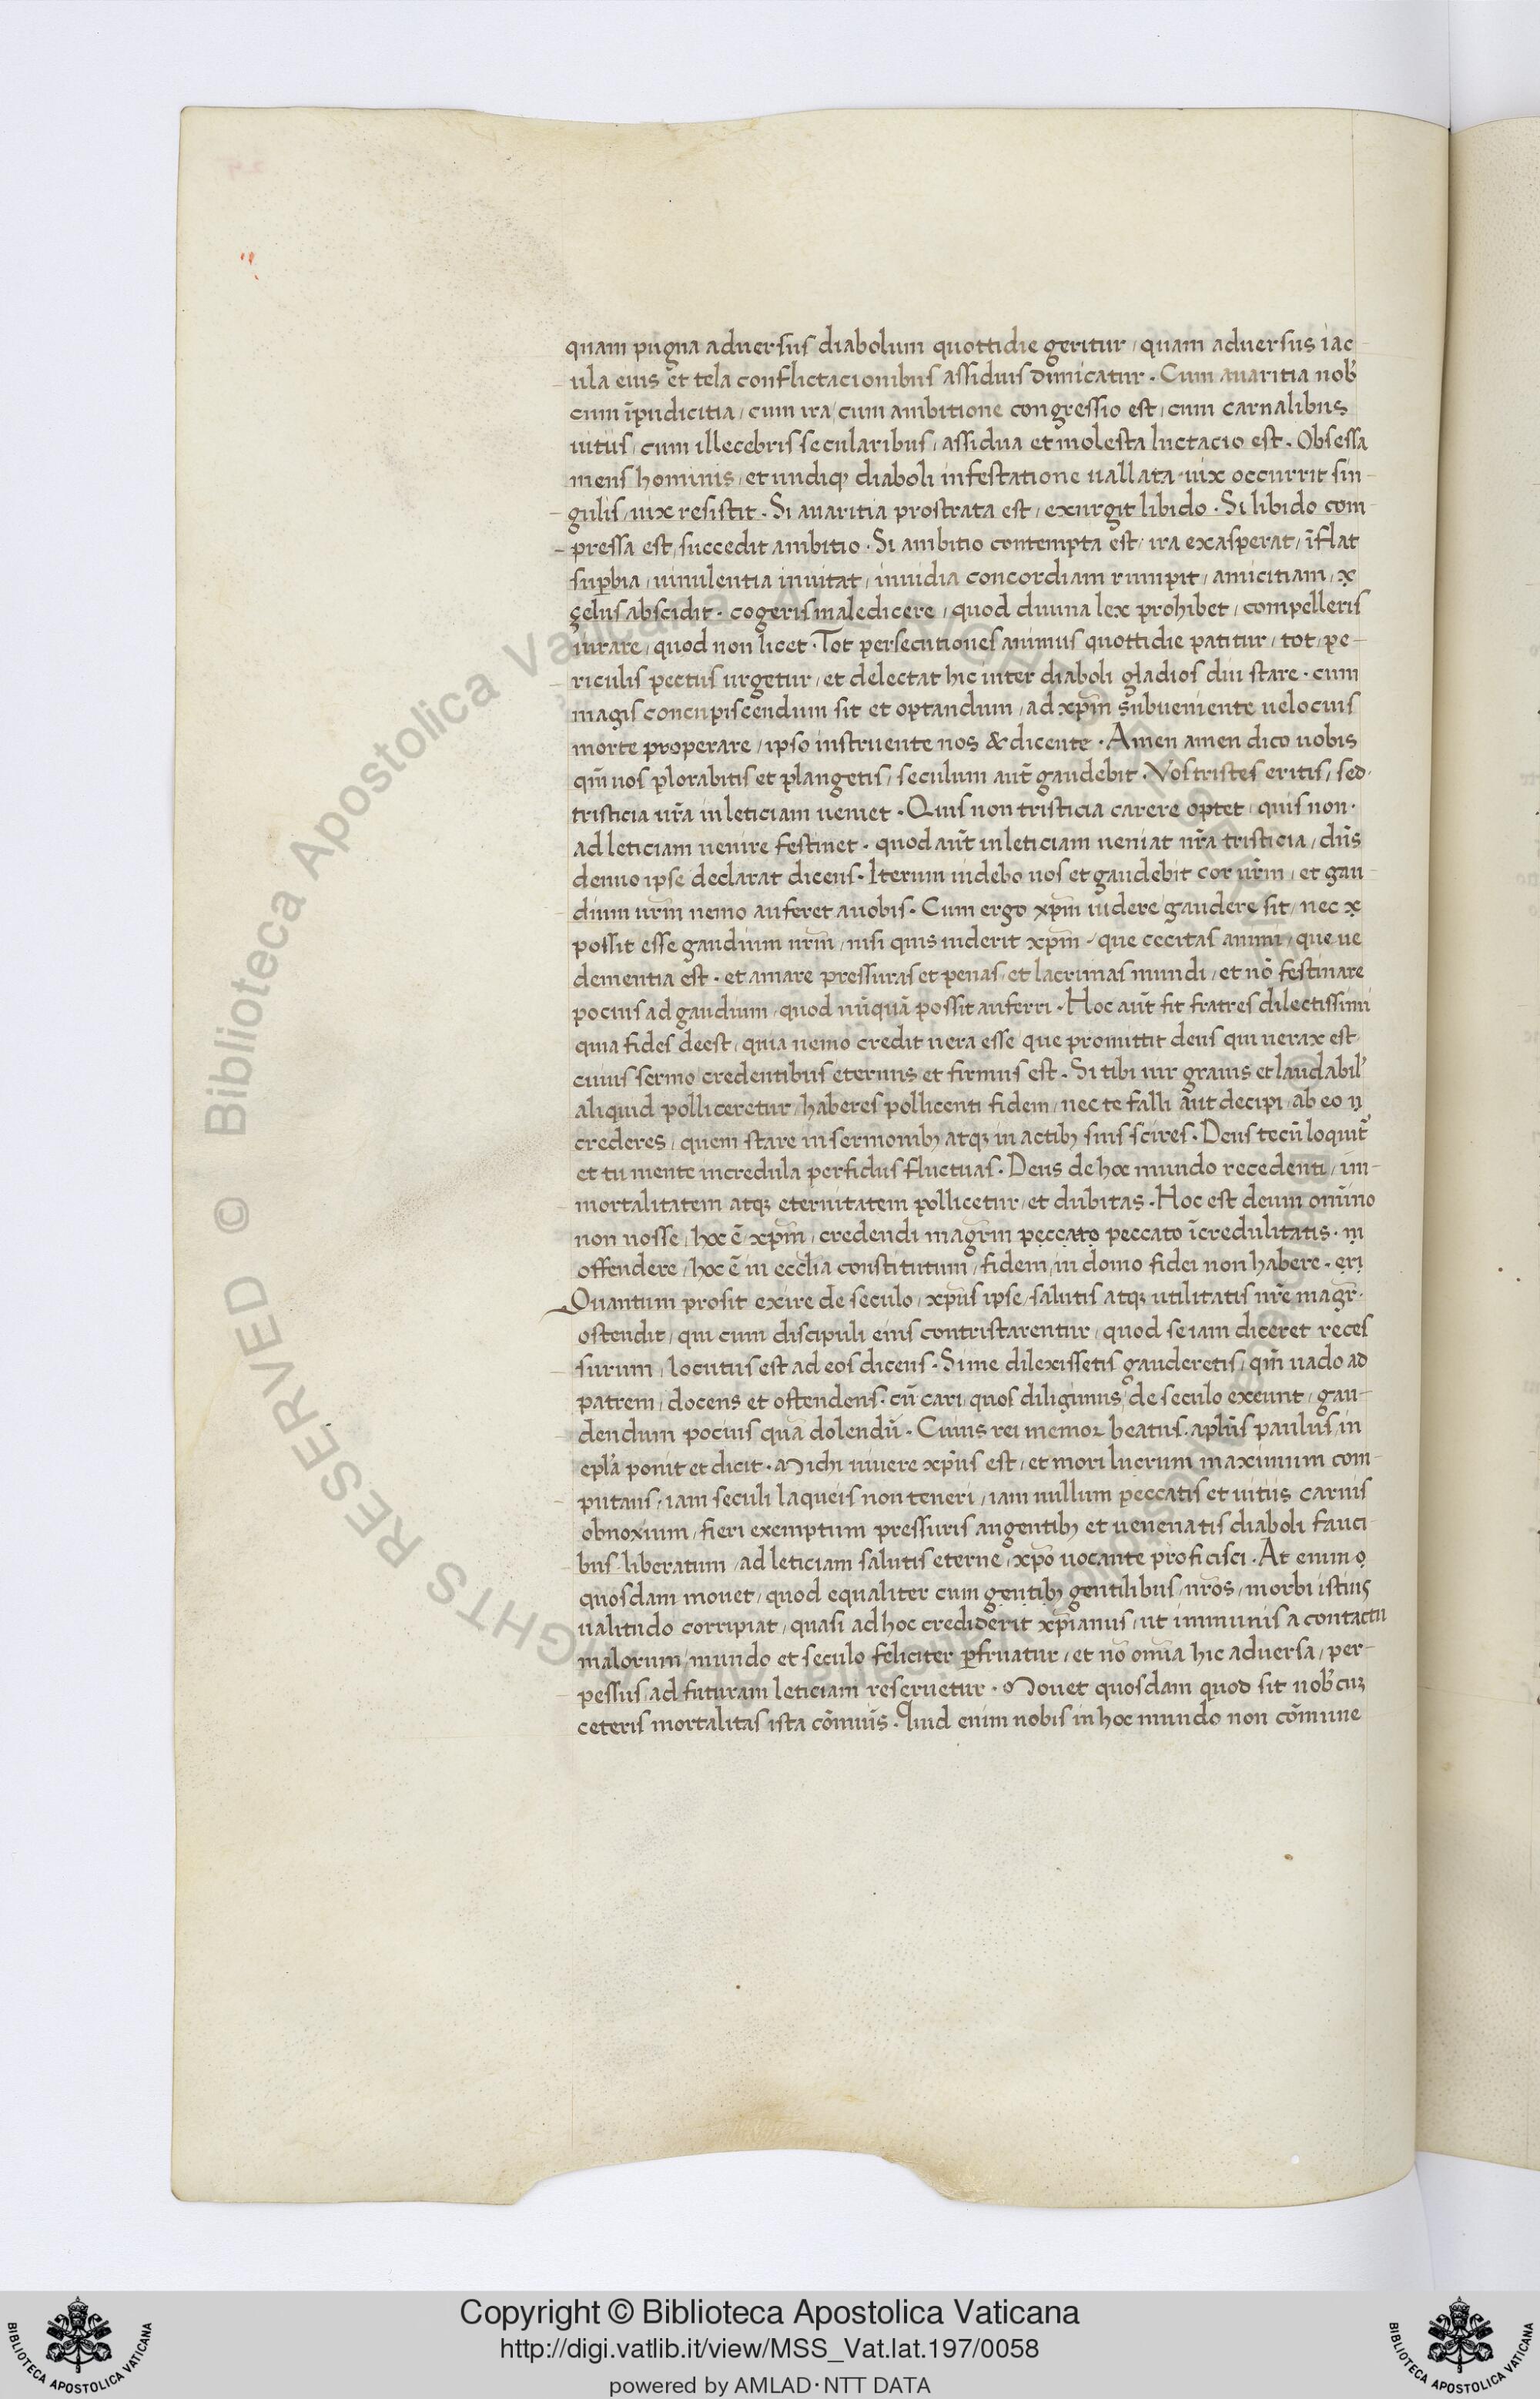 quam pugna aduersus diabolum quottidie geritur / quam aduersus iac
ula eius et tela conflictacionibus assiduis dimicatur · Cum auaritia nob̛
cum īpudicitia / cum ira / cum ambitione congressio est / cum carnalibus
uitiis / cum illecebris secularibus / assidua et molesta luctacio est · Obsessa
mens hominis / et undiqꝫ diaboli infestatione uallata / uix occurrit sin-
gulis / uix resistit · Si auaritia prostrata est / exurgit libido · Si libido com
pressa est / succedit ambitio · Si ambitio contempta est / ira exasperat / īflat
suꝑbia / uinulentia inuitat / inuidia concordiam rumpit / amicitiam / x̣
çelus abscidit · cogeris maledicere / quod diuina lex prohibet / compelleris
iurare / quod non licet · Tot persecutiones animus quottidie patitur / tot / pe-
riculis pectus urgetur / et delectat hic inter diaboli gladios diu stare · cum
magis concupiscendum sit et optandum / ad xp̄m subueniente uelocius
morte properare / ipso instruente nos & dicente · Amen amen dico uobis
qm̄ uos plorabitis et plangetis / seculum aut̄ gaudebit · Vos tristes eritis / sed ·
tristicia ur̄a in leticiam ueniet · Quis non tristicia carere optet / quis non ·
ad leticiam uenire festinet · quod aut̄ in leticiam ueniat nr̄a tristicia / dn̄s
denuo ipse declarat dicens · Iterum uidebo uos et gaudebit cor ur̄m / et gau
dium ur̄m nemo auferet a uobis · Cum ergo xp̄m uidere / gaudere sit / nec x̣
possit esse gaudium nr̄m / nisi quis uiderit xp̄m / que cecitas animi / que ue
dementia est · et amare pressuras et penas / et lacrimas mundi / et nō festinare
pocius ad gaudium / quod nūquā possit auferri · Hoc aut̄ fit fratres dilectissimi
quia fides deest / quia nemo credit uera esse que promittit deus qui uerax est
cuius sermo credentibus eternus et firmus est · Si tibi uir grauis et laudabil̛
aliquid polliceretur / haberes pollicenti fidem / nec te falli aut decipi / ab eo ṇ
crederes / quem stare in sermonibꝫ atqꝫ in actibꝫ suis scires · Deus tecū loquit̄
et tu mente incredula perfidus fluctuas · Deus de hoc mundo recedenti / im-
mortalitatem atqꝫ eternitatem pollicetur / et dubitas · Hoc est deum omīno
non nosse / hoc ē xp̄m / credendi magr̄m p̣ecc̣ato̧ peccato īcredulitatis · ṃ
offendere / hoc ē in ecclīa constitutum / fidem / in domo fidei non habere · eṛị
Quantum prosit exire de seculo / xp̄us ipse / salutis atqꝫ utilitatis nr̄e magr̄ ·
ostendit / qui cum discipuli eius contristarentur / quod se iam diceret reces
surum / locutus est ad eos dicens · Si me dilexissetis gauderetis / qm̄ uado ad
patrem / docens et ostendens · cū cari quos diligimus / de seculo exeunt / gau-
dendum pocius quā dolendū · Cuius rei memor beatus · apl̄us paulus / in
epl̄a ponit et dicit · Michi uiuere xp̄us est / et mori lucrum / maximum com-
putans / iam seculi laqueis non teneri / iam nullum peccatis et uitiis carnis
obnoxium / fieri exemptum pressuris angentibꝫ et uenenatis diaboli fauci
bus liberatum / ad leticiam salutis eterne / xp̄o uocante proficisci · At enim ọ
quosdam mouet / quod equaliter cum gentibꝫ gentilibus / nr̄os / morbi istius
ualitudo corripiat / quasi ad hoc crediderit xp̄ianus / ut immunis a contactu
malorum / mundo et seculo feliciter ꝑfruatur / et nō om̄ia hic aduersa / per-
pessus / ad futuram leticiam reseruetur · Mouet quosdam quod sit nob̛ cuꝫ
ceteris mortalitas ista cōmuīs · Quid enim nobis in hoc mundo non cōmune
Biblioteca Apostolica Vaticana ©
ALL RIGHTS RESERVED
Copyright © Biblioteca Apostolica Vaticana
http://digi.vatlib.it/view/MSS_Vat.lat.197/0058
powered by AMLAD·NTT DATA
BIBLIOTECA APOSTOLICA VATICANA
BIBLIOTECA APOSTOLICA VATICANA